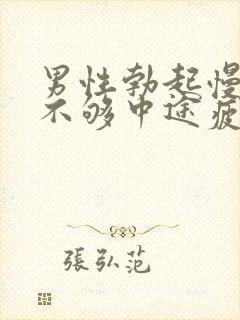 男性勃起慢
不够中途疲
張弘范